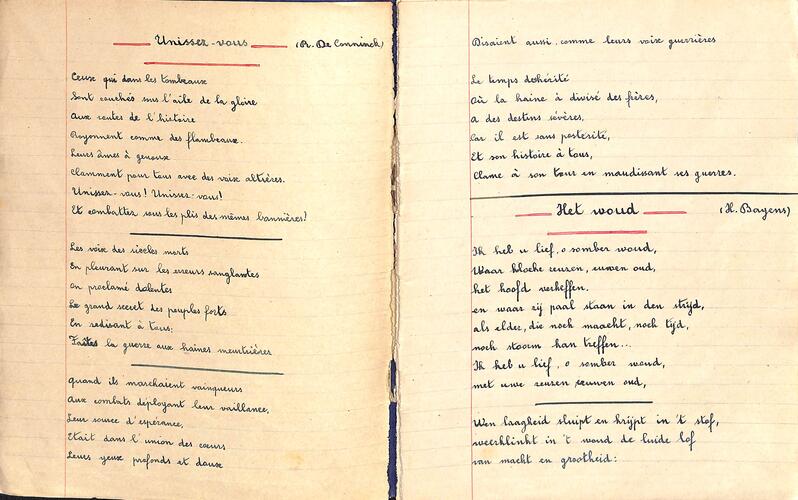 Unissez-vous (R. De Conninck)
Ceux qui dans les tombeaux
Sont couchés sous l'aile de la gloire
Aux routes de l'histoire
Rayonnent comme des flambeaux.
Leurs âmes à genoux
Clamment pour tous avec des voix altières.
Unissez-vous! Unissez-vous!
Et combattez sous les plis des mêmes bannières!
Les voix des siècles morts
En pleurant sur les erreurs sanglantes
On proclamé dolentes
Le grand secret des peuples forts
En redisant à tous:
Faites la guerre aux haines meurtrières
Quand ils marchaient vainqueurs
Aux combats déployant leur vaillance,
Leur source d'espérance,
Etait dans l'union des cœurs
Leurs yeux profonds et doux
Disaient aussi, comme leurs voix guerrières
Le temps déshérité
Où la haine à divisé des frères,
A des destins sévères,
Car il est sans postérité,
Et son histoire à tous,
Clame à son tour en maudissant ses guerres.
Het woud (H. Bayens)
Ik heb u lief, o somber woud,
Waar kloeke reuzen, euwen oud,
het hoofd verheffen.
en waar zij paal staan in den strijd,
als elder, die noch macht, noch tijd,
noch storm kan treffen...
Ik heb u lief, o somber woud,
met uwe reuzen eeuwen oud,
Wen laagheid sluipt en krijpt in 't stof,
weerklinkt in 't woud de luide lof
van macht en grootheid: